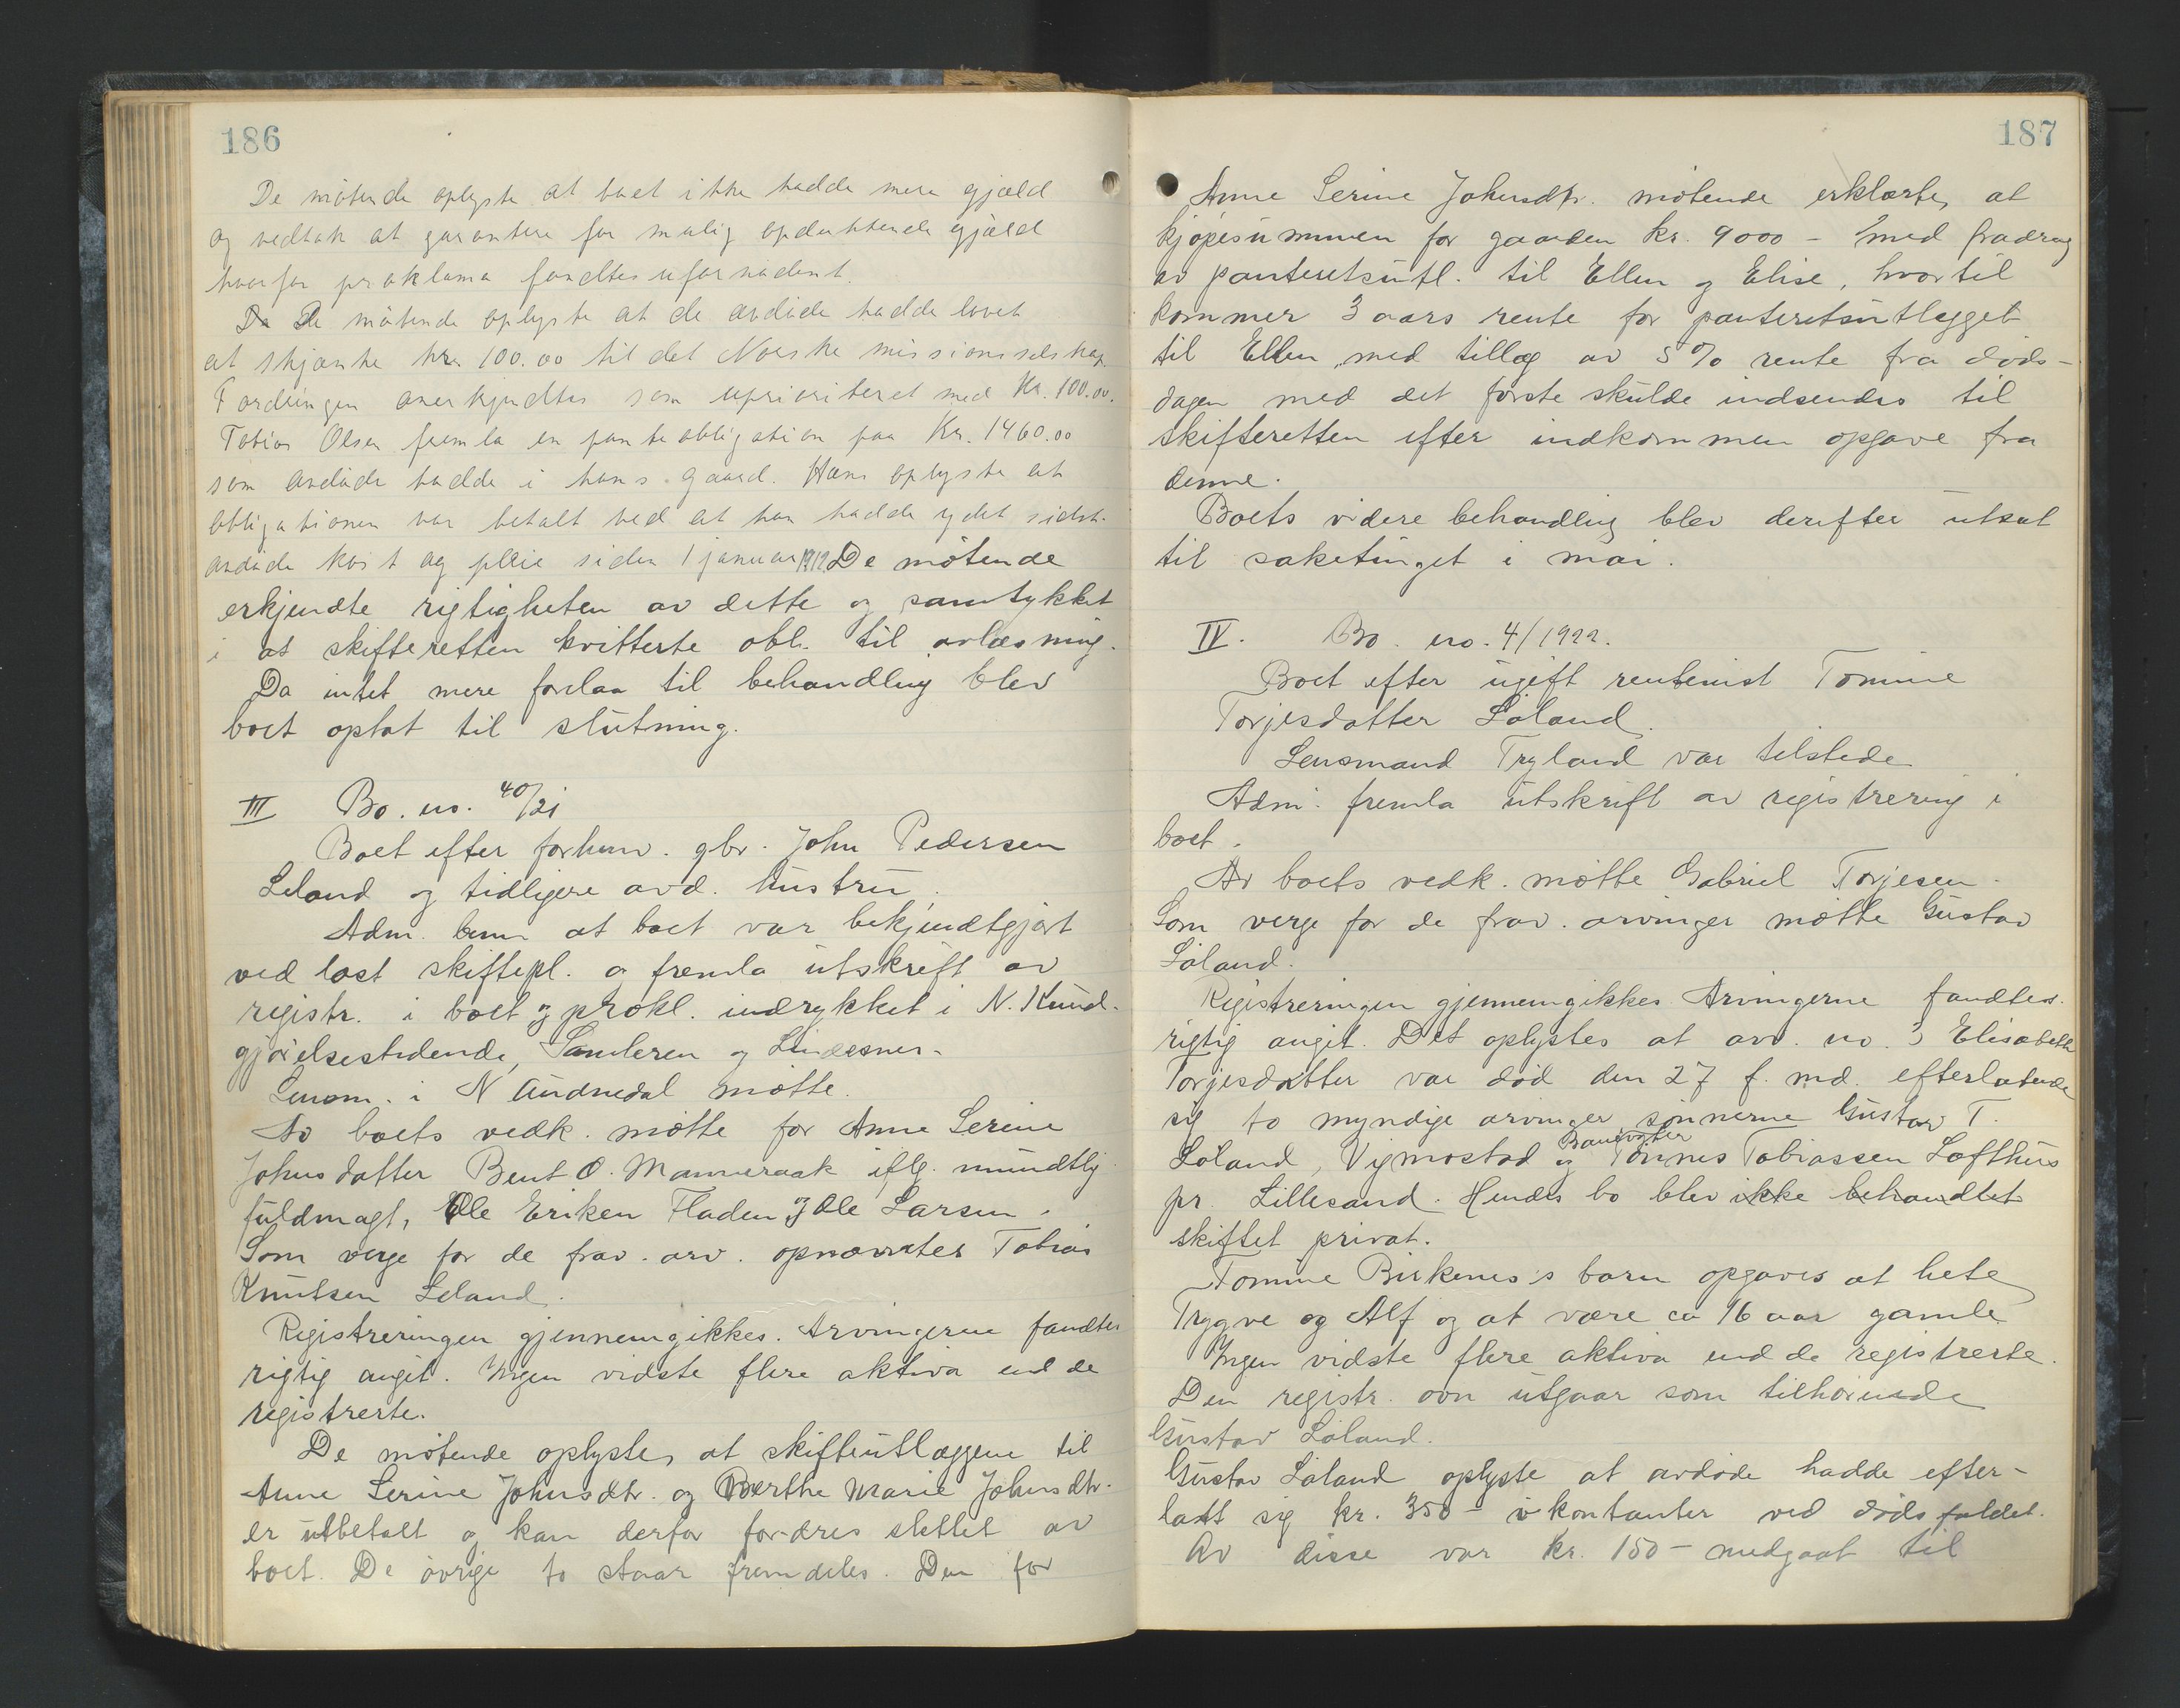 186
De møtende oplyste at boet ikke hadde mere gjæld
og vedtok at garantere for mulig opdukkende gjæld
hvorfor proklama fandtes ufornødent.
De møtende oplyste at de avdøde hadde lovet
at skjænke kr. 100.00 til det Norske missionsselskap.
Fordringen anerkjendtes som uprioriteret med Kr. 100.00.
Tobias Olsen fremla en panteobligation paa Kr. 1460.00
som avdøde hadde i hans gaard. Han oplyste at
obligationen var betalt ved at han hadde ydet sidst.
avdøde kost og pleie siden 1 januar 1912 De møtende
erkjendte rigtigheten av dette og samtykket
i at skifteretten kvitterte obl. til avlæsning.
Da intet mere forelaa til behandling blev
boet optat til slutning.
III Bo. no. 40/21
Boet efter forhenv. gbr. John Pedersen
Leland og tidligere avd. hustru.
Adm. bem at boet var bekjendtgjort
ved læst skiftepl. og fremla utskrift av
registr. i boet og prokl. indrykket i N. Kund-
gjørelsestidende, Samleren og Lindesnes.
Lensm. i N Audnedal møtte.
Av boets vedk. møtte for Anne Serine
Johnsdatter Bent O. Manneraak iflg. mundtlig
fuldmagt, Ole Eriken Fladen og Ole Larsen.
Som verge for de frav. arv. opnævntes Tobias
Knutsen Leland.
Registreringen gjennemgikkes. Arvingerne fandtes
rigtig angit. Ingen vidste flere aktiva end de
registrerte.
De møtende oplyste, at skifteutlæggene til
Anne Serine Johnsdtr. og Berthe Marie Johnsdtr.
er utbetalt og kan derfor fordres slettet av
boet. De øvrige to staar fremdeles. Den for
187
Anne Serine Johnsdtr. møtende erklærte, at
kjøpesummen for gaarden kr. 9000 - med fradrag
av panteretsutl. til Ellen og Elise, hvortil
kommer 3 aars rente for panteretsutlægget
til Ellen, med tillæg av 5 % rente fra døds-
dagen med det første skulde indsendes til
skifteretten efter indkommen opgave fra
denne.
Boets videre behandling blev derefter utsat
til saketinget i mai.
IV. Bo. no. 4/1922.
Boet efter ugift rentenist Tomine
Torjesdatter Løland.
Lensmand Tryland var tilstede
Adm. fremla utskrift av registrering i
boet.
Av boets vedk. møtte Gabriel Torjesen.
Som verge for de frav. arvinger møtte Gustav
Løland.
Registreringen gjennemgikkes. Arvingerne fandtes
rigtig angit. Det oplystes at arv. no. 3 Elisabeth
Torjesdatter var død den 27 f. md. efterlatende
sig to myndige arvinger sønnerne Gustav T.
Løland, Vigmostad og Banevogter Tønnes Tobiassen Lofthus
pr. Lillesand. Hendes bo blev ikke behandlet
skiftet privat.
Tomine Birkenes's barn opgaves at hete
Trygve og Alf og at være ca 16 aar gamle
Ingen vidste flere aktiva end de registrerte.
Den registr. ovn utgaar som tilhørende
Gustav Løland.
Gustav Løland oplyste at avdøde hadde efter-
latt sig kr. 350 - i kontanter ved dødsfaldet.
Av disse var kr. 150 - medgaat til